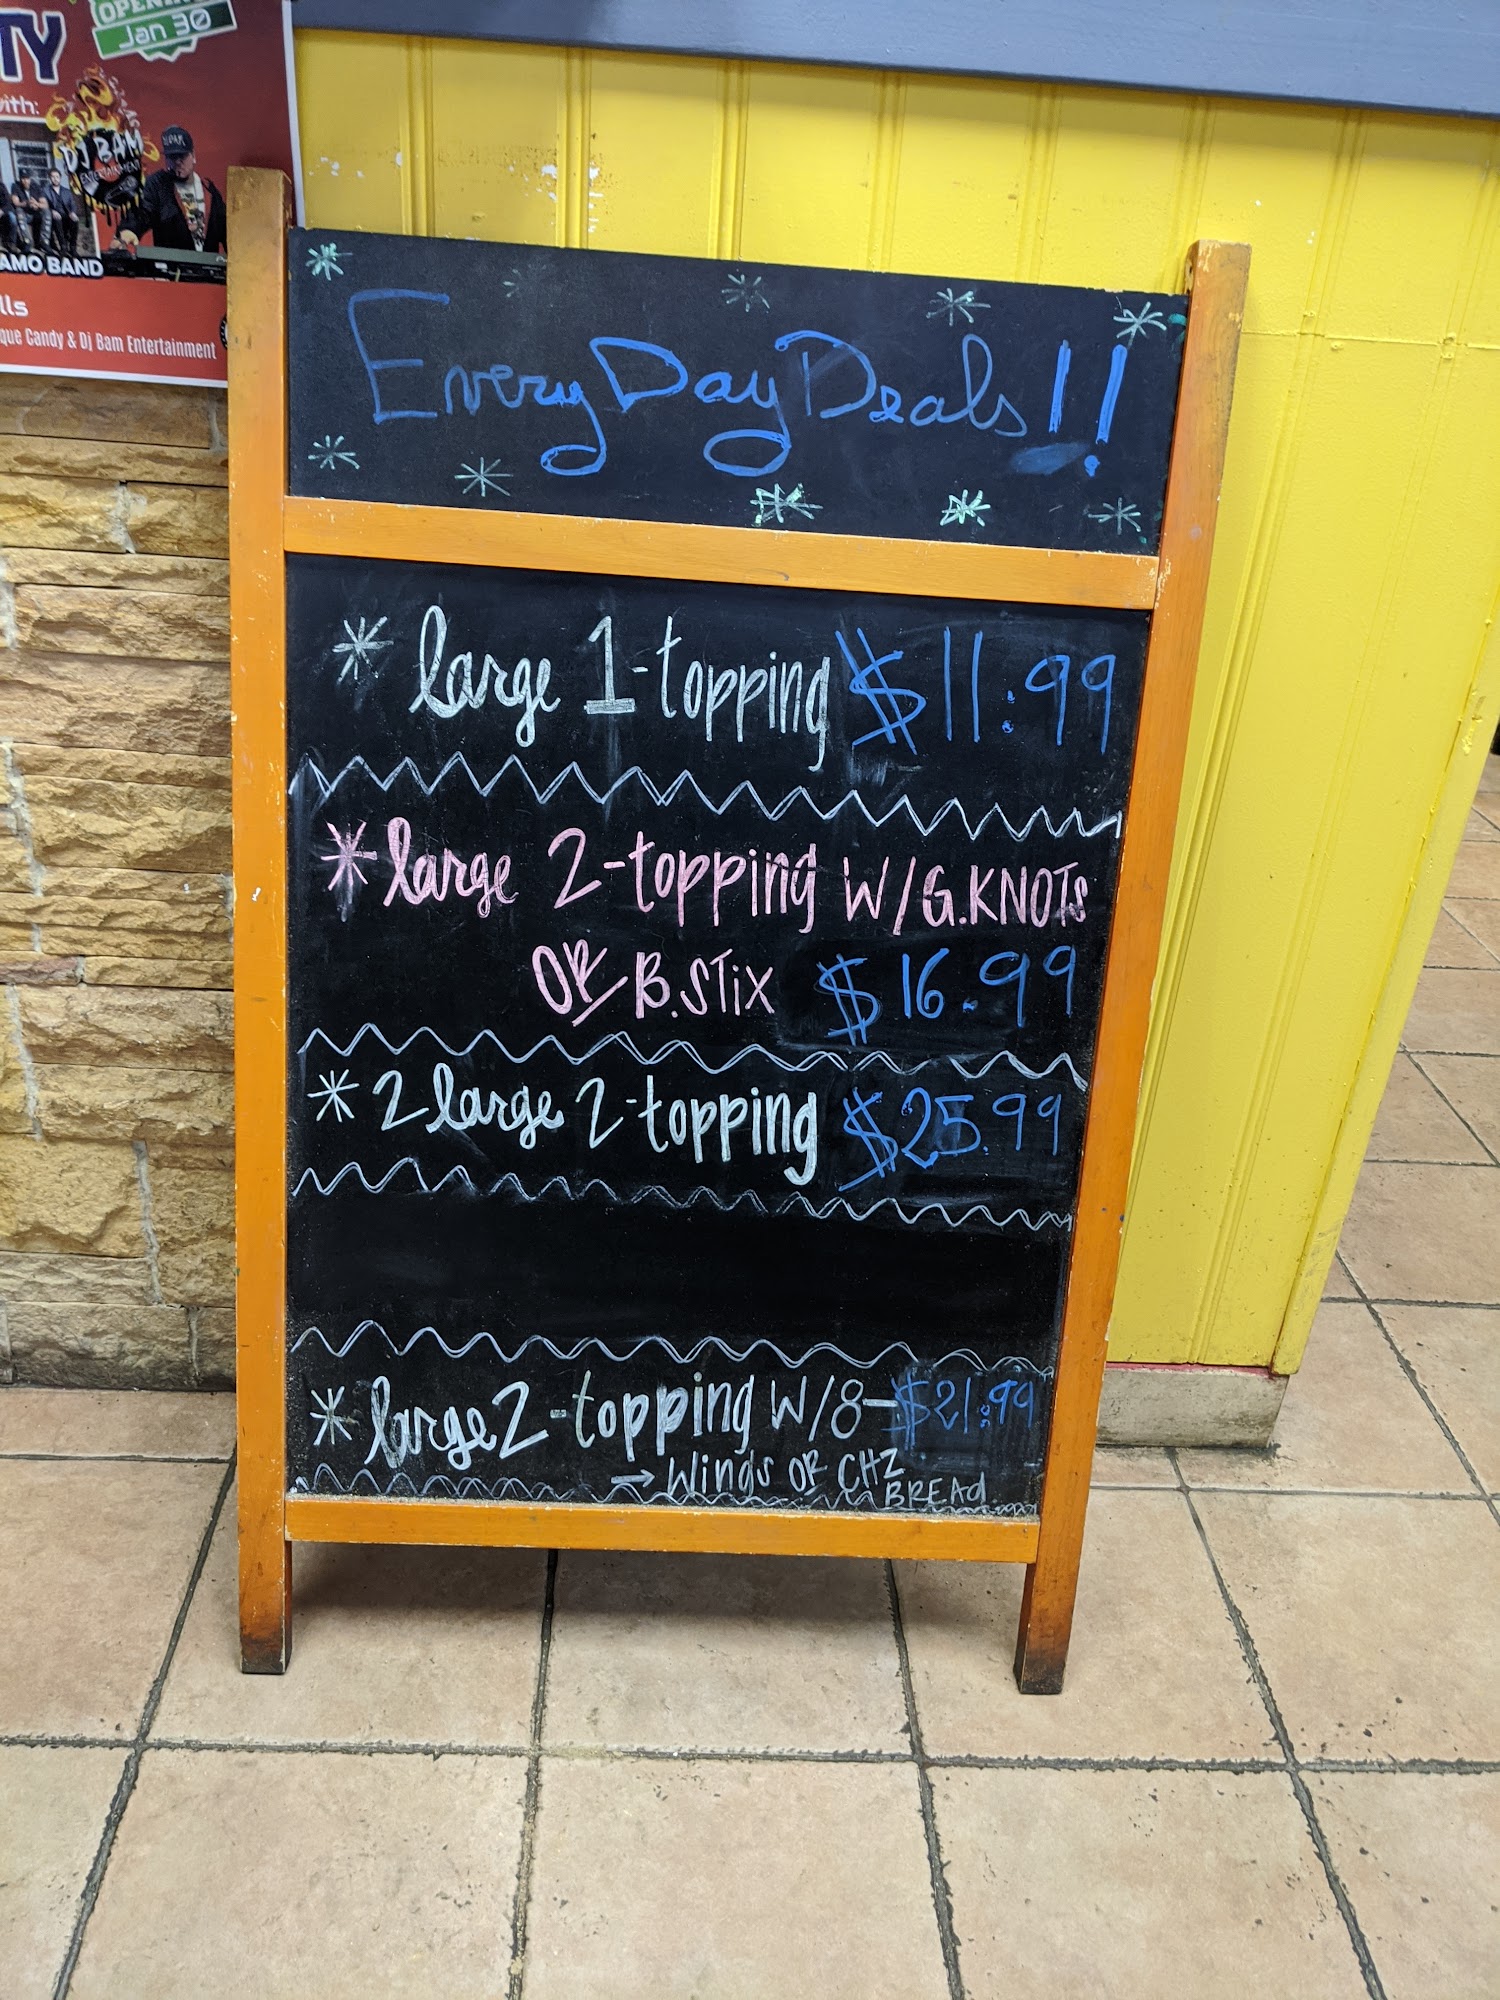 OPENI
Jan 30
TY
with:
DJ BAM
ENTERTAINMENT
AMO BAND
lls
que Candy & Dj Bam Entertainment
EveryDay Deals!!
* large 1-topping $11.99
* large 2-topping W/G.KNOTS
OR B.STiX $16.99
* 2 large 2-topping $25.99
* large 2-topping W/8- $21.99
→ Wings OR CHZ
BREAd